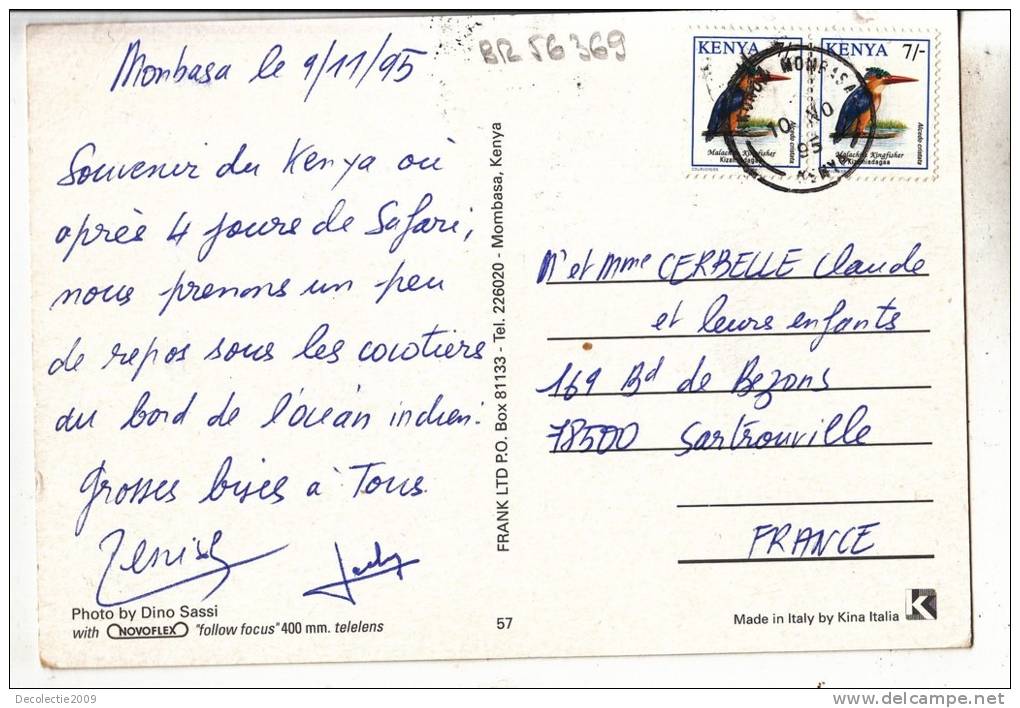 Monbasa le 9/11/95
BR 56 369
KENYA 7/-
KENYA 7/-
MOMBASA
10 NO
95
KENYA
Malachite Kingfisher
Alcedo cristata
Malachite Kingfisher
Alcedo cristata
Souvenir du Kenya où
après 4 jours de Safari,
nous prenons un peu
de repos sous les cocotiers
au bord de l'océan indien.
Grosses bises à Tous.
Denise
FRANK LTD P.O. Box 81133 - Tel. 226020 - Mombasa, Kenya
Mr et Mme CERBELLE Claude
et leurs enfants
169 Bd de Bezons
78500 Sartrouville
FRANCE
Photo by Dino Sassi
with NOVOFLEX "follow focus" 400 mm. telelens
57
Made in Italy by Kina Italia
K
Decolectie2009
www.delcampe.net